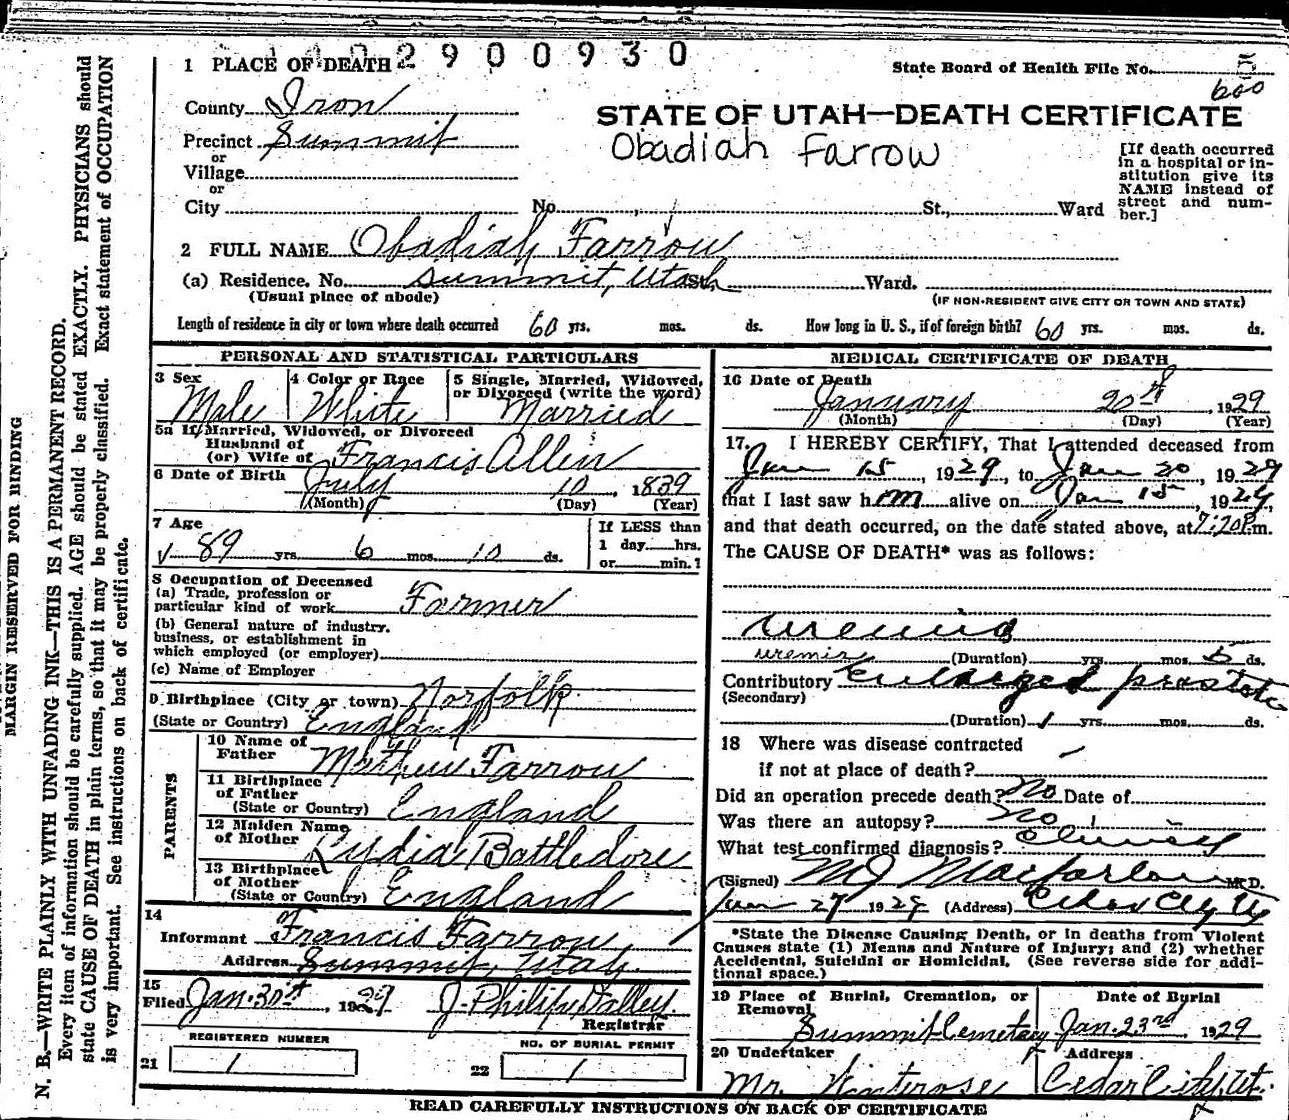 2900930
1 PLACE OF DEATH
State Board of Health File No.
600
County Iron
STATE OF UTAH—DEATH CERTIFICATE
Precinct Summit
Obadiah Farrow
or
Village
or
City No. St., Ward
[If death occurred
in a hospital or in-
stitution give its
NAME instead of
street and num-
ber.]
2 FULL NAME Obadiah Farrow
(a) Residence. No. Summit, Utah St. Ward.
(Usual place of abode)
(IF NON-RESIDENT GIVE CITY OR TOWN AND STATE)
Length of residence in city or town where death occurred 60 yrs. mos. ds. How long in U. S., if of foreign birth? 60 yrs. mos. ds.
PERSONAL AND STATISTICAL PARTICULARS
3 Sex
Male
4 Color or Race
White
5 Single, Married, Widowed,
or Divorced (write the word)
Married
5a If Married, Widowed, or Divorced
Husband of
(or) Wife of Francis Allen
6 Date of Birth July 10, 1839
(Month) (Day) (Year)
7 Age
89 yrs. 6 mos. 10 ds.
If LESS than
1 day hrs.
or min. ?
8 Occupation of Deceased
(a) Trade, profession or
particular kind of work Farmer
(b) General nature of industry.
business, or establishment in
which employed (or employer)
(c) Name of Employer
9 Birthplace (City or town) Norfolk
(State or Country) England
PARENTS
10 Name of
Father Mathew Farrow
11 Birthplace
of Father
(State or Country) England
12 Maiden Name
of Mother Lydia Battledore
13 Birthplace
of Mother
(State or Country) England
14
Informant Francis Farrow,
Address Summit, Utah.
15
Filed Jan. 30st, 1929 J. Philip Dalley.
Registrar
REGISTERED NUMBER
21 1
NO. OF BURIAL PERMIT
22 1
MEDICAL CERTIFICATE OF DEATH
16 Date of Death
January 20th, 1929
(Month) (Day) (Year)
17. I HEREBY CERTIFY, That I attended deceased from
Jan 15, 1929, to Jan 20, 1929
that I last saw him alive on Jan 15, 1929,
and that death occurred, on the date stated above, at 7:20 P.m.
The CAUSE OF DEATH* was as follows:
uremia
uremia (Duration) yrs. mos. 5 ds.
Contributory Enlarged prostate
(Secondary)
(Duration) 1 yrs. mos. ds.
18 Where was disease contracted
if not at place of death?
Did an operation precede death? No Date of
Was there an autopsy? No
What test confirmed diagnosis? Clinical
(Signed) M J Macfarlane M. D.
Jan 27 1929 (Address) Cedar City Ut
*State the Disease Causing Death, or in deaths from Violent
Causes state (1) Means and Nature of Injury; and (2) whether
Accidental, Suicidal or Homicidal. (See reverse side for addi-
tional space.)
19 Place of Burial, Cremation, or
Removal
Summit Cemetary
Date of Burial
Jan. 23rd 1929
20 Undertaker
Mr. Winterose
Address
Cedar City, Ut.
READ CAREFULLY INSTRUCTIONS ON BACK OF CERTIFICATE
MARGIN RESERVED FOR BINDING
N. B.—WRITE PLAINLY WITH UNFADING INK—THIS IS A PERMANENT RECORD.
Every item of information should be carefully supplied. AGE should be stated EXACTLY. PHYSICIANS should
state CAUSE OF DEATH in plain terms, so that it may be properly classified. Exact statement of OCCUPATION
is very important. See instructions on back of certificate.